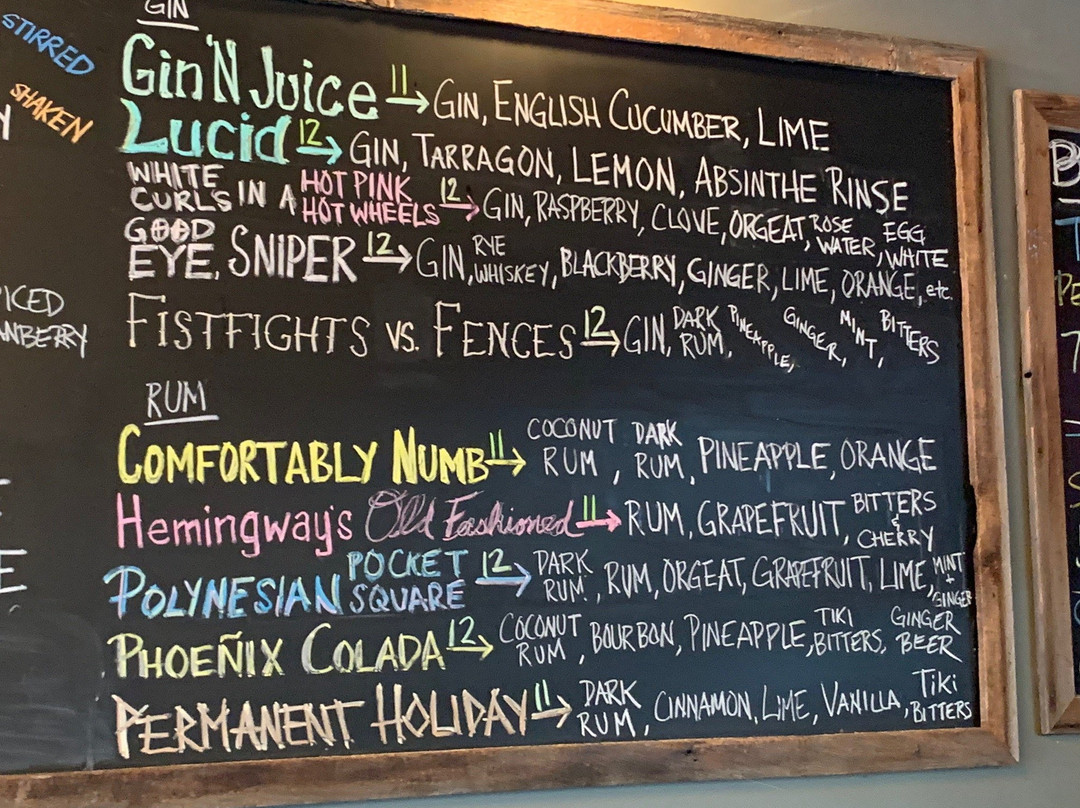 STIRRED
SHAKEN
GIN
Gin 'N Juice 11 → GIN, ENGLISH CUCUMBER, LIME
Lucid 12 → GIN, TARRAGON, LEMON, ABSINTHE RINSE
WHITE CURLS IN A HOT PINK HOT WHEELS 12 → GIN, RASPBERRY, CLOVE, ORGEAT, ROSE WATER, EGG WHITE
GOOD EYE, SNIPER 12 → GIN, RYE WHISKEY, BLACKBERRY, GINGER, LIME, ORANGE, etc.
FISTFIGHTS VS. FENCES 12 → GIN, DARK RUM, PINEAPPLE, GINGER, MINT, BITTERS
RUM
COMFORTABLY NUMB 11 → COCONUT RUM, DARK RUM, PINEAPPLE, ORANGE
Hemingway's Old Fashioned 11 → RUM, GRAPEFRUIT, BITTERS & CHERRY
POLYNESIAN POCKET SQUARE 12 → DARK RUM, RUM, ORGEAT, GRAPEFRUIT, LIME, MINT + GINGER
PHOEÑIX COLADA 12 → COCONUT RUM, BOURBON, PINEAPPLE, TIKI BITTERS, GINGER BEER
PERMANENT HOLIDAY 11 → DARK RUM, CINNAMON, LIME, VANILLA, TIKI BITTERS